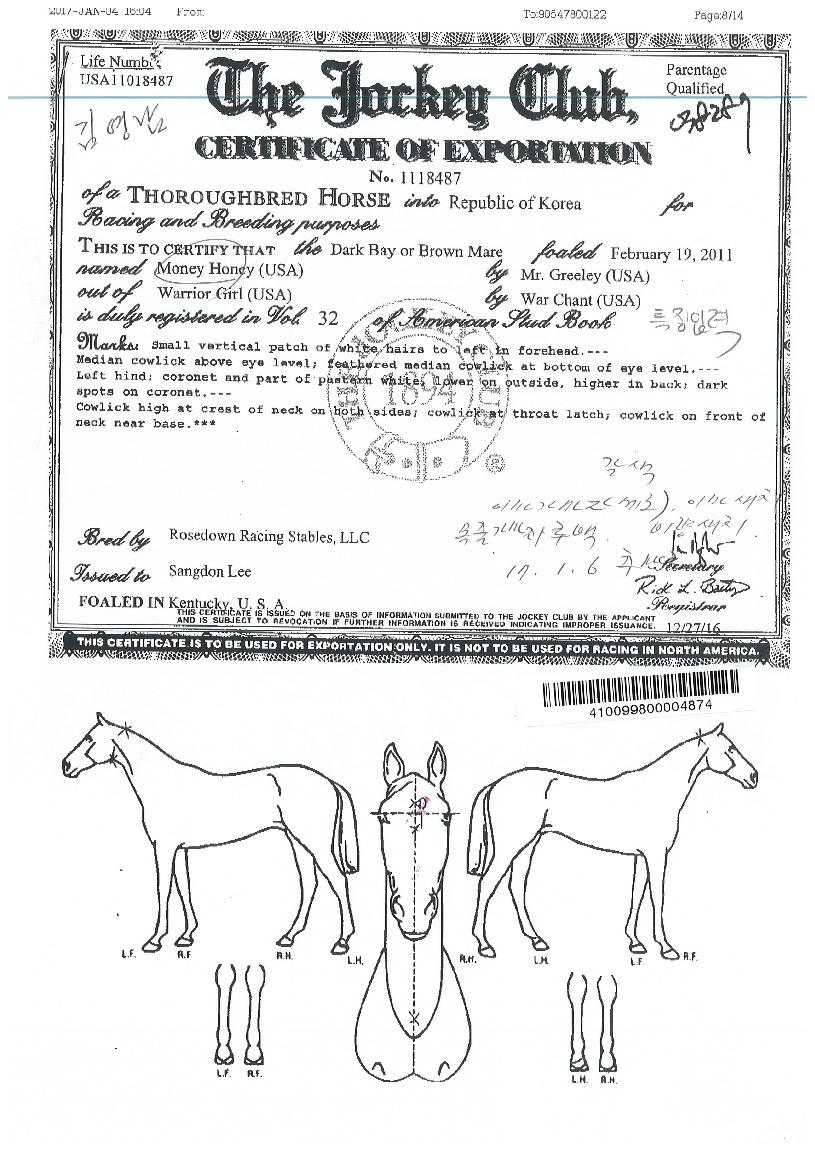 2017-JAN-04 16:04 From: To:90647800122 Page:8/14
Life Number
USA11018487
The Jockey Club,
Parentage
Qualified
CERTIFICATE OF EXPORTATION
No. 1118487
of a THOROUGHBRED HORSE into Republic of Korea for
Racing and Breeding purposes
THIS IS TO CERTIFY THAT the Dark Bay or Brown Mare foaled February 19, 2011
named Money Honey (USA) by Mr. Greeley (USA)
out of Warrior Girl (USA) by War Chant (USA)
is duly registered in Vol. 32 of American Stud Book
Marks: Small vertical patch of white hairs to left in forehead.---
Median cowlick above eye level; feathered median cowlick at bottom of eye level.---
Left hind; coronet and part of pastern white, lower on outside, higher in back; dark
spots on coronet.---
Cowlick high at crest of neck on both sides; cowlick at throat latch; cowlick on front of
neck near base.***
1894
®
Bred by Rosedown Racing Stables, LLC
Issued to Sangdon Lee
17. 1. 6
Secretary
Registrar
FOALED IN Kentucky, U. S. A.
THIS CERTIFICATE IS ISSUED ON THE BASIS OF INFORMATION SUBMITTED TO THE JOCKEY CLUB BY THE APPLICANT
AND IS SUBJECT TO REVOCATION IF FURTHER INFORMATION IS RECEIVED INDICATING IMPROPER ISSUANCE. 12/27/16
THIS CERTIFICATE IS TO BE USED FOR EXPORTATION ONLY. IT IS NOT TO BE USED FOR RACING IN NORTH AMERICA.
410099800004874
L.F. R.F. R.H. L.H. R.H. L.H. L.F. R.F.
L.F. R.F. L.H. R.H.